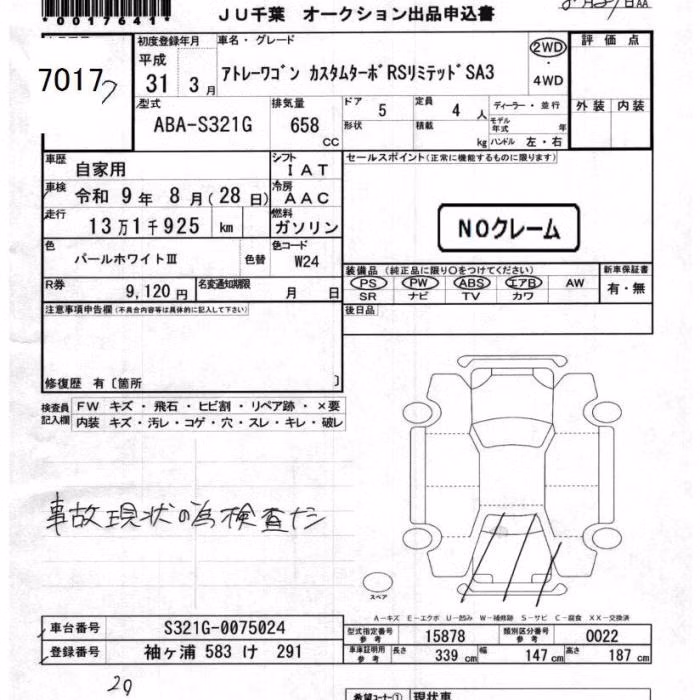 *0017641*
JU千葉 オークション出品申込書
7017
初度登録年月 車名・グレード 評価点
平成 31年 3月 アトレーワゴン カスタムターボRSリミテッドSA3 2WD ・ 4WD
型式 排気量 ドア 5 定員 4人 ディーラー・並行 外装 内装
ABA-S321G 658 CC 形状 積載 kg モデル年式 年 ハンドル 左・右
車歴 自家用 シフト IAT セールスポイント(正常に機能するものに限ります)
車検 令和 9年 8月(28日) 冷房 AAC
走行 13万1千925 km 燃料 ガソリン
NOクレーム
色 パールホワイトⅢ 色替 色コード W24
装備品(純正品に限り○をつけてください) 新車保証書
PS PW ABS エアB AW 有・無
SR ナビ TV カワ
R券 9,120円 名変通知期限 月 日
注意事項申告欄(不具合内容等は具体的に記入して下さい) 後日品
修復歴 有〔箇所 〕
検査員記入欄 FW キズ・飛石・ヒビ割・リペア跡・×要
内装 キズ・汚レ・コゲ・穴・スレ・キレ・破レ
事故現状の為検査ナシ
スペア
A-キズ E-エクボ U-凹み W-補修跡 S-サビ C-腐食 XX-交換済
車台番号 S321G-0075024 型式指定番号参考 15878 類別区分番号参考 0022
登録番号 袖ヶ浦 583 け 291 車庫証明用参考 長さ 339 cm 幅 147 cm 高さ 187 cm
29
希望コーナー① 現状車